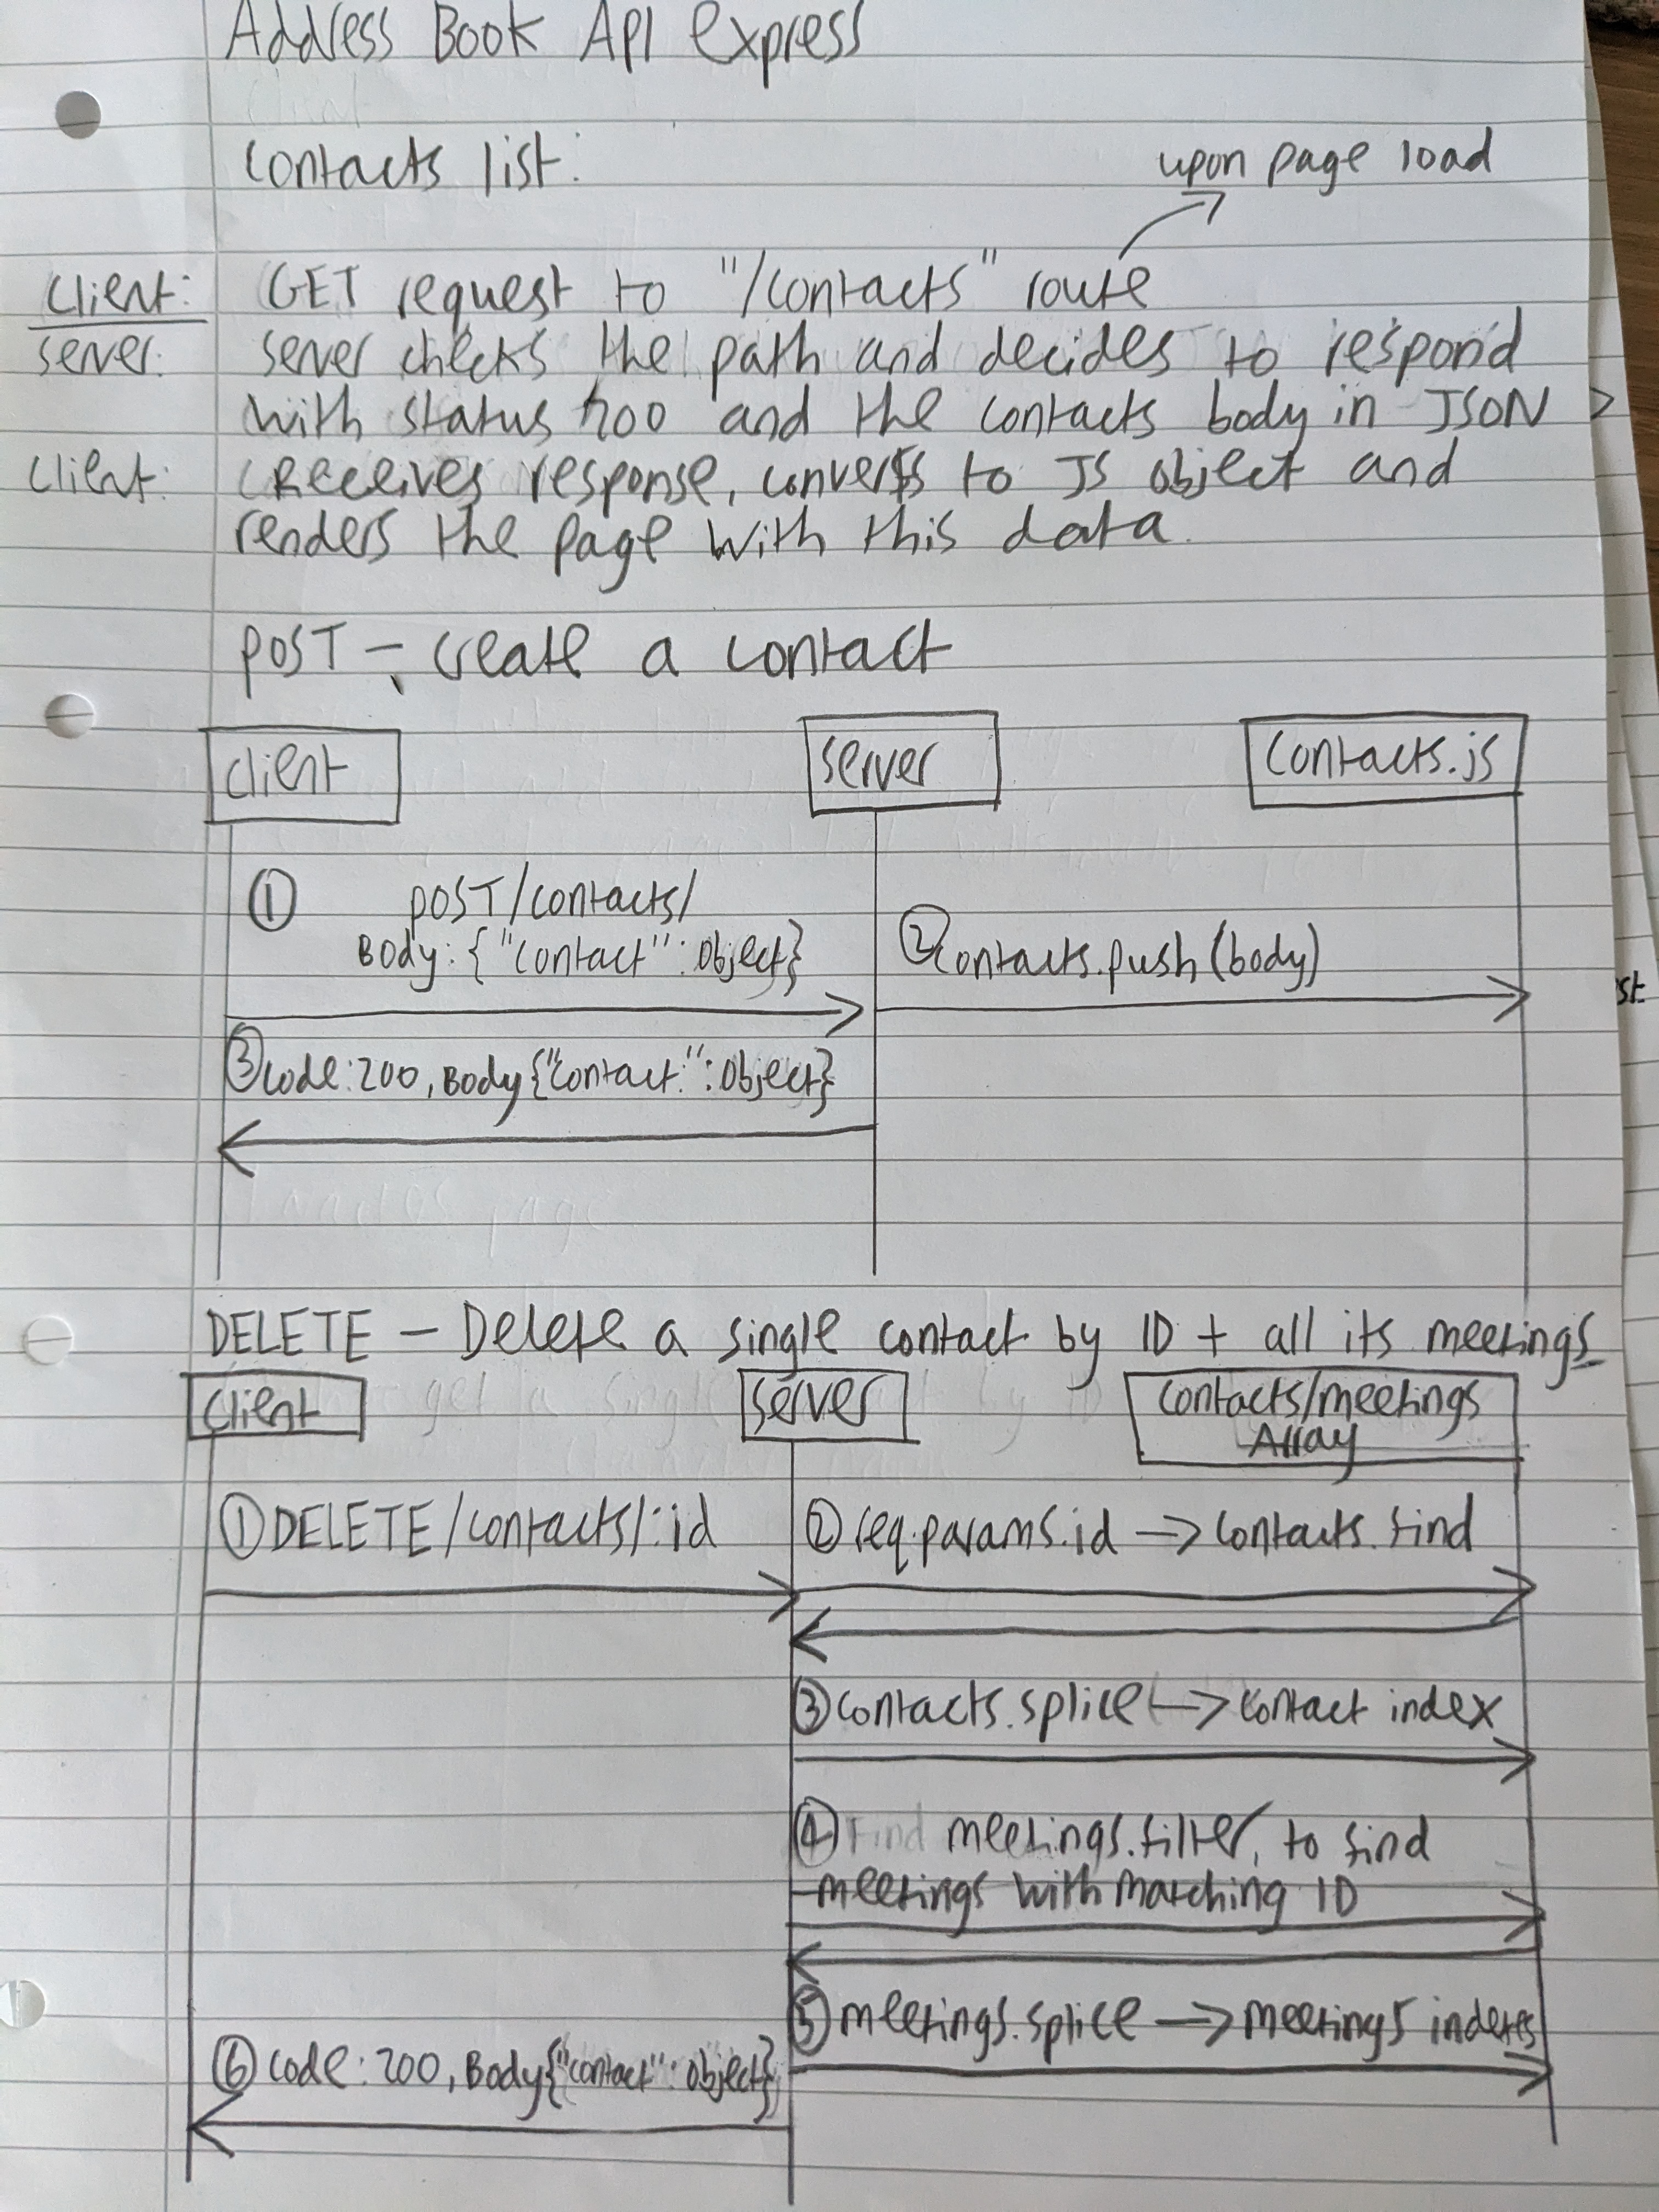 Address Book API Express
Contacts list:
upon page load
Client: GET request to "/contacts" route
Server: Server checks the path and decides to respond
with status 200 and the contacts body in JSON
Client: Receives response, converts to JS object and
renders the page with this data.
POST - create a contact
Client
Server
Contacts.js
① POST/contacts/
Body: {"Contact": Object}
② Contacts.push(body)
③ Code: 200, Body {"Contact": Object}
DELETE - Delete a single contact by ID + all its meetings
Client
Server
Contacts/meetings
Array
① DELETE/contacts/:id
② req.params.id -> contacts.find
③ contacts.splice -> contact index
④ Find meetings.filter, to find
meetings with matching ID
⑤ meetings.splice -> meetings indexes
⑥ Code: 200, Body {"contact": object}